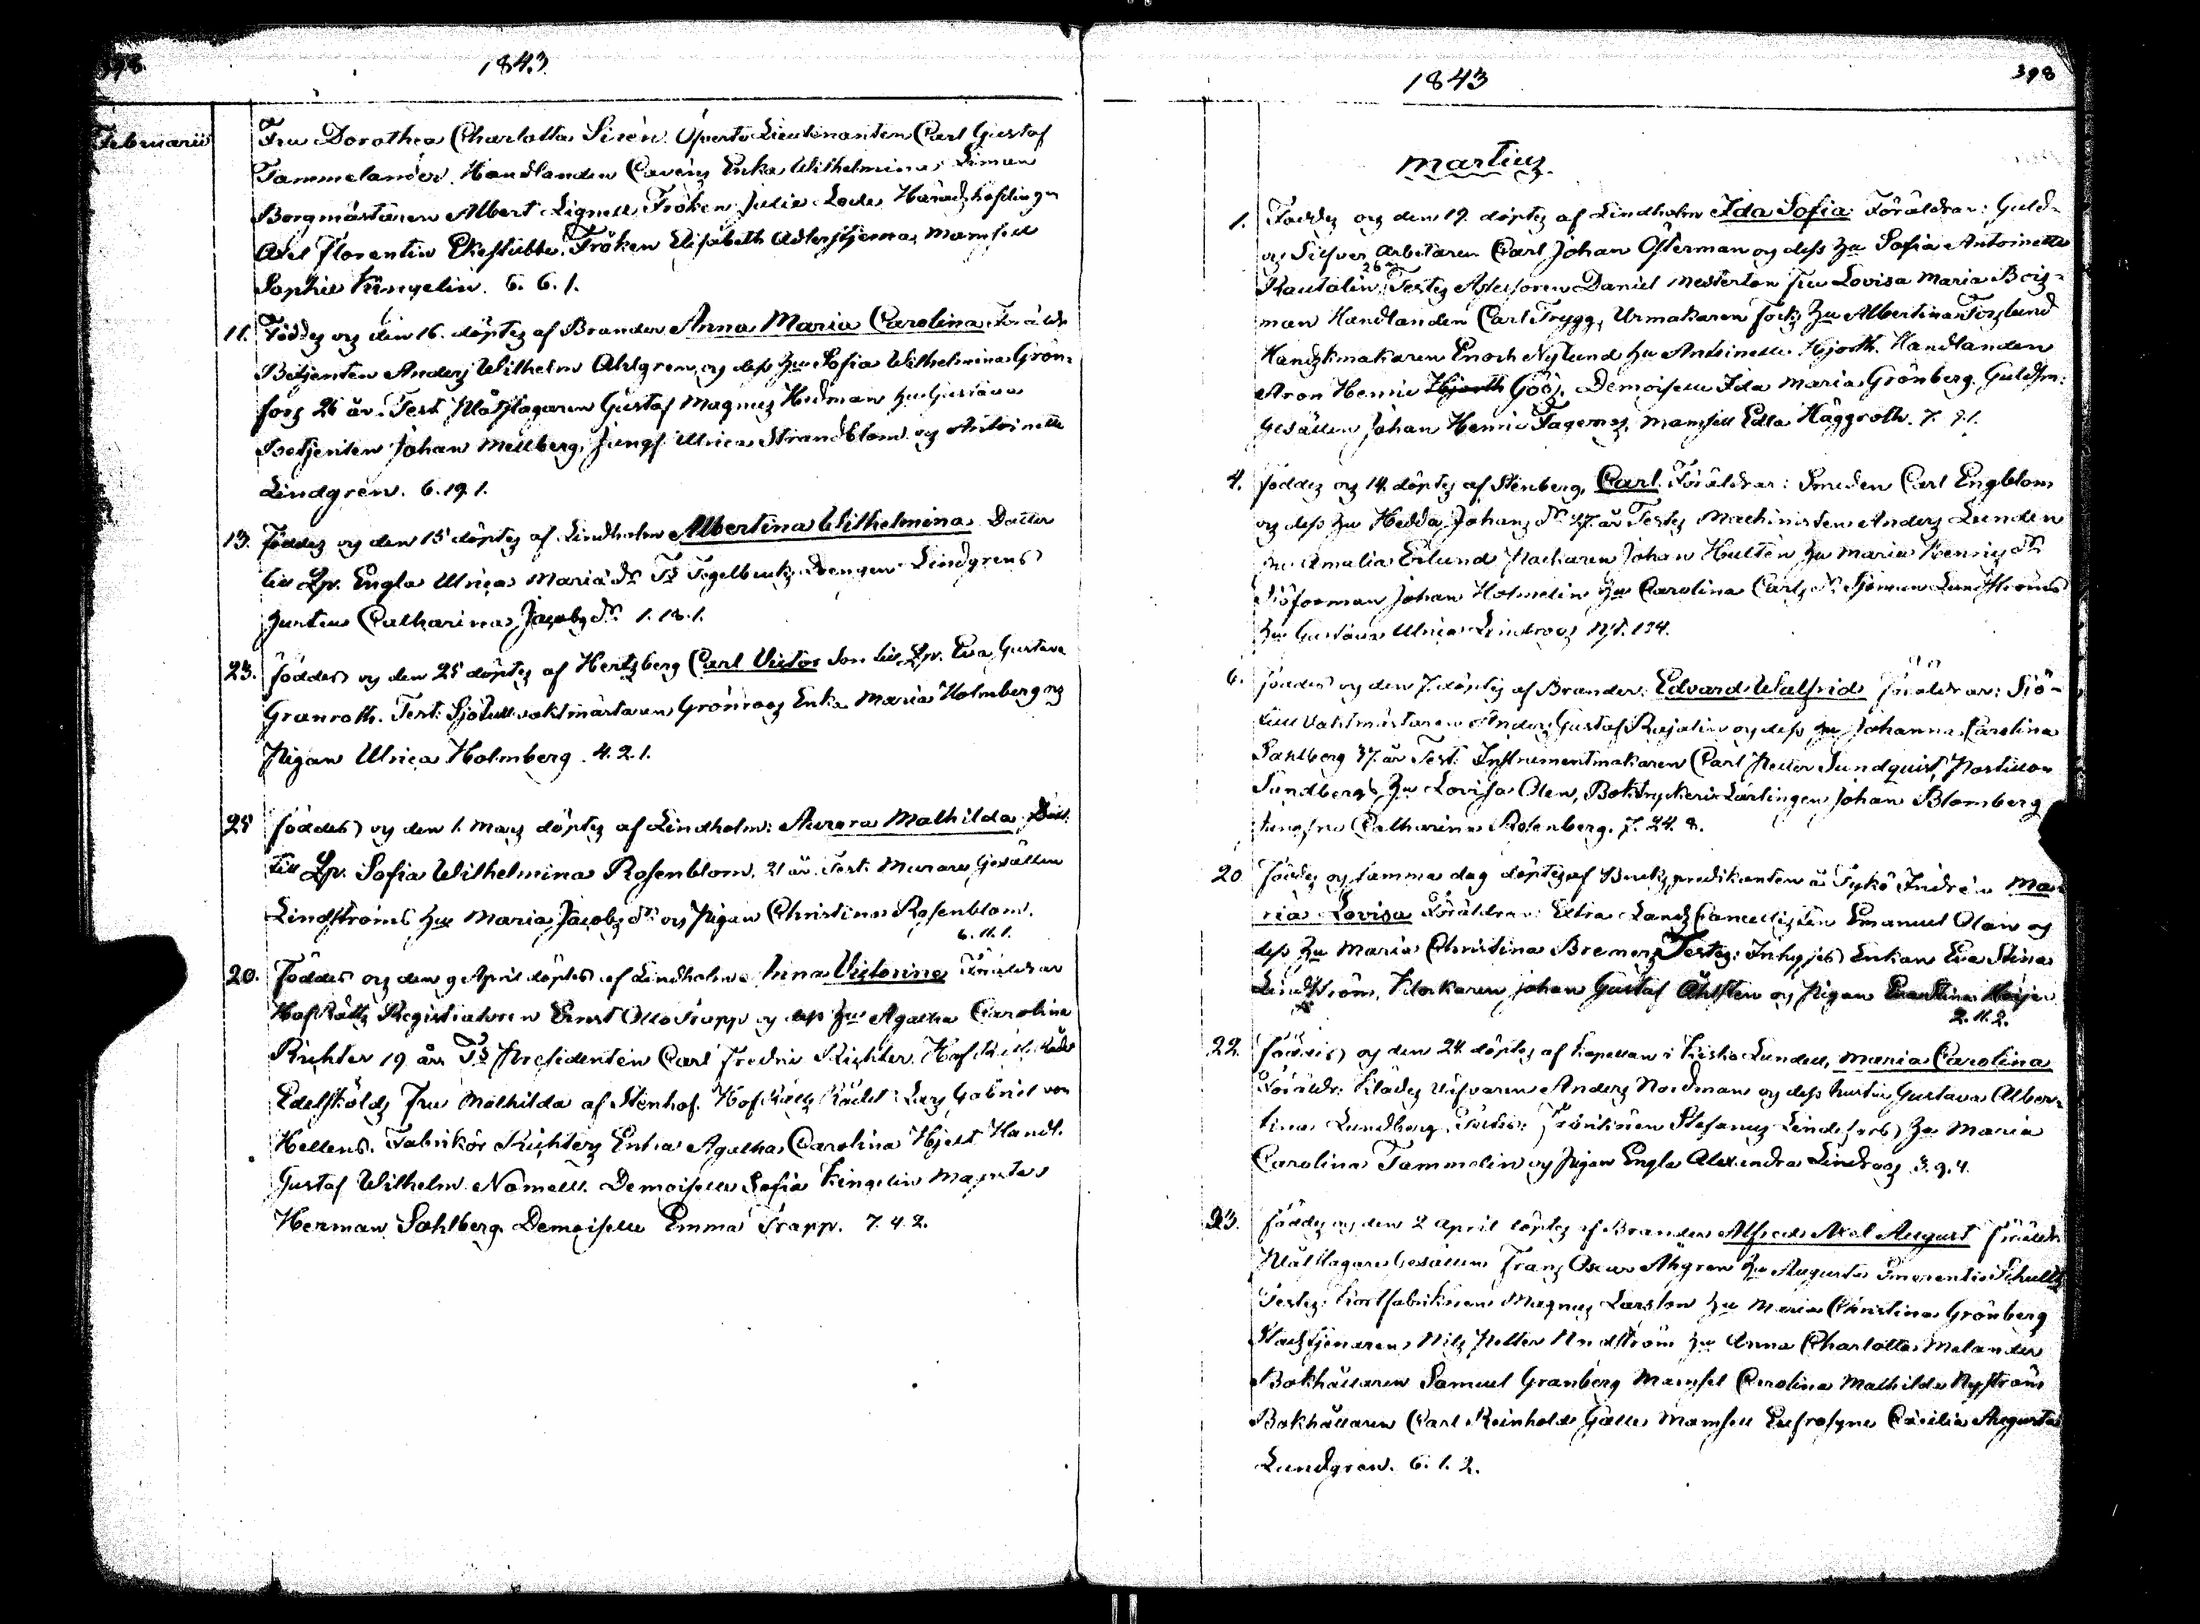 398
1843
Februarii
Fru Dorothea Charlotta Sirén. Öfverste Lieutenanten Carl Gustaf
Tammelander. Handlanden Cavéns Enka Wilhelmina Liman
Borgmästaren Albert Lignell Fröken Julie Lode Häradshöfdingen
Axel Florentin Ekestubbe. Fröken Elisabeth Adlerstjerna, Mamsell
Sophie Kingelin. 6. 6. 1.
11. Föddes och den 16. döptes af Brander Anna Maria Carolina. Föräldr
Betjenten Anders Wilhelm Ahlgren och dess hu Sofia Wilhelmina Grön-
fors 26 år. Test. Plåtslagaren Gustaf Magnus Hedman hu Gustava
Betjenten Johan Mellberg, Jungf. Ulrica Strandblom och Antoinette
Lindgren. 6. 19. 1.
13. Föddes och den 15 döptes af Lindholm Albertina Wilhelmina Dotter
till Lp. Engla Ulrica Maria dr Ts Tegelbruks drengen Lindgrens
hustru Catharina Jacobs dr 1. 18. 1.
23. Föddes och den 25 döptes af Hertzberg Carl Victor Son till Lp. Eva Gustava
Granroth. Test: Sjötullvaktmästaren Grönroos Enka Maria Holmberg och
Pigan Ulrica Holmberg. 4. 2. 1.
28 föddes och den 1. Mars döptes af Lindholm: Aurora Mathilda Dott.
till Lp. Sofia Wilhelmina Rosenblom. 21 år. Test: Murare Gesällen
Lindströms hu Maria Jacobs dr och Pigan Christina Rosenblom.
6. 11. 1.
20. Föddes och den 9 April döptes af Lindholm Anna Victorina Föräldrar
Hof Rätts Registratoren Ernst Otto Trapp och dess hu Agatha Carolina
Richter 19 år. Ts Presidenten Carl Fredric Richter. Hof Rätts Rådet
Edelskölds Fru Mathilda af Stenhof. Hof Rätts Rådet Lars Gabriel von
Hellens. Fabrikör Richters Enka Agatha Carolina Hjelt Handl.
Gustaf Wilhelm Nomell. Demoiselle Sofia Kingelin Magister
Herman Sahlberg. Demoiselle Emma Trapp. 7. 4. 2.
1843
398
Martius.
1. Föddes och den 19. döptes af Lindholm Ida Sofia Föräldrar: Guld-
och Silfver arbetaren Carl Johan Österman och dess hu Sofia Antoinette
Rautelin 26 Testes Assessoren Daniel Mesterton Fru Lovisa Maria Bois-
man Handlanden Carl Trygg, Urmakaren Fock, hu Albertina Forslund
Handskmakaren Enoch Nylund hu Antoinette Hjorth. Handlanden
Aron Henric Hjorth Göös. Demoiselle Ida Maria Grönberg. Guldsm:
Gesällen Johan Henric Fagernes. Mamsell Edla Häggroth. 7. 7. 1.
4. föddes och 14. döptes af Stenberg, Carl Föräldrar: Smeden Carl Engblom
och dess hu Hedda Johans dr 27 år Testes Machinisten Anders Lunden
hu Amalia Enlund Packaren Johan Hultén hu Maria Henrics dr
Sjöforman Johan Holmelin hu Carolina Carls dr Sjöman Lundströms
hu Gustava Ulrica Lindroos Nyt. 134.
6. föddes och den 7. döptes af Brander: Edvard Walfrid föräldrar: Sjö-
tull vaktmästaren Anders Gustaf Rajalin och dess hu Johanna Carolina
Sahlberg 37 år Test: Instrumentmakaren Carl Petter Sundquist, Postillon
Sundberg, hu Lovisa Olen, Boktryckeri Lärlingen Johan Blomberg
Jungfru Catharina Rosenberg. 7. 24. 8.
20 föddes och samma dag döptes af Bruks predikanten å Tykö Indrén Ma-
ria Lovisa Föräldrar: Extra Lands Cancellisten Emanuel Olain och
dess hu Maria Christina Bremer Testes: Inhyses Enkan Eva Stina
Lindström, Klockaren Johan Gustaf Åhlsten och Pigan
2. 11. 2.
22. föddes och den 24 döptes af Kapellan i Kisko Lundell, Maria Carolina
Föräldr: Klädes väfvaren Anders Nordman och dess hustru Gustava Alber-
tina Lundberg. Testes: Stefanus Lindefors, hu Maria
Carolina Tammelin och Pigan Engla Alexandra Lindroos 3. 9. 4.
23. föddes och den 2 April döptes af Brander Alfred Axel August Föräldr.
Plåtslagare Gesällen Frans Oscar Åhgren hu Augusta Emerentia Schultz
Testes: Kortfabrikören Magnus Larsson hu Maria Christina Grönberg
Nils Petter Nordström hu Anna Charlotta Melander
Bokhållaren Samuel Granberg Mamsel Carolina Mathilda Nyström
Bokhållaren Carl Reinhold Gälle Mamsell Eufrosyne Cecilia Augusta
Lundgren. 6. 1. 2.